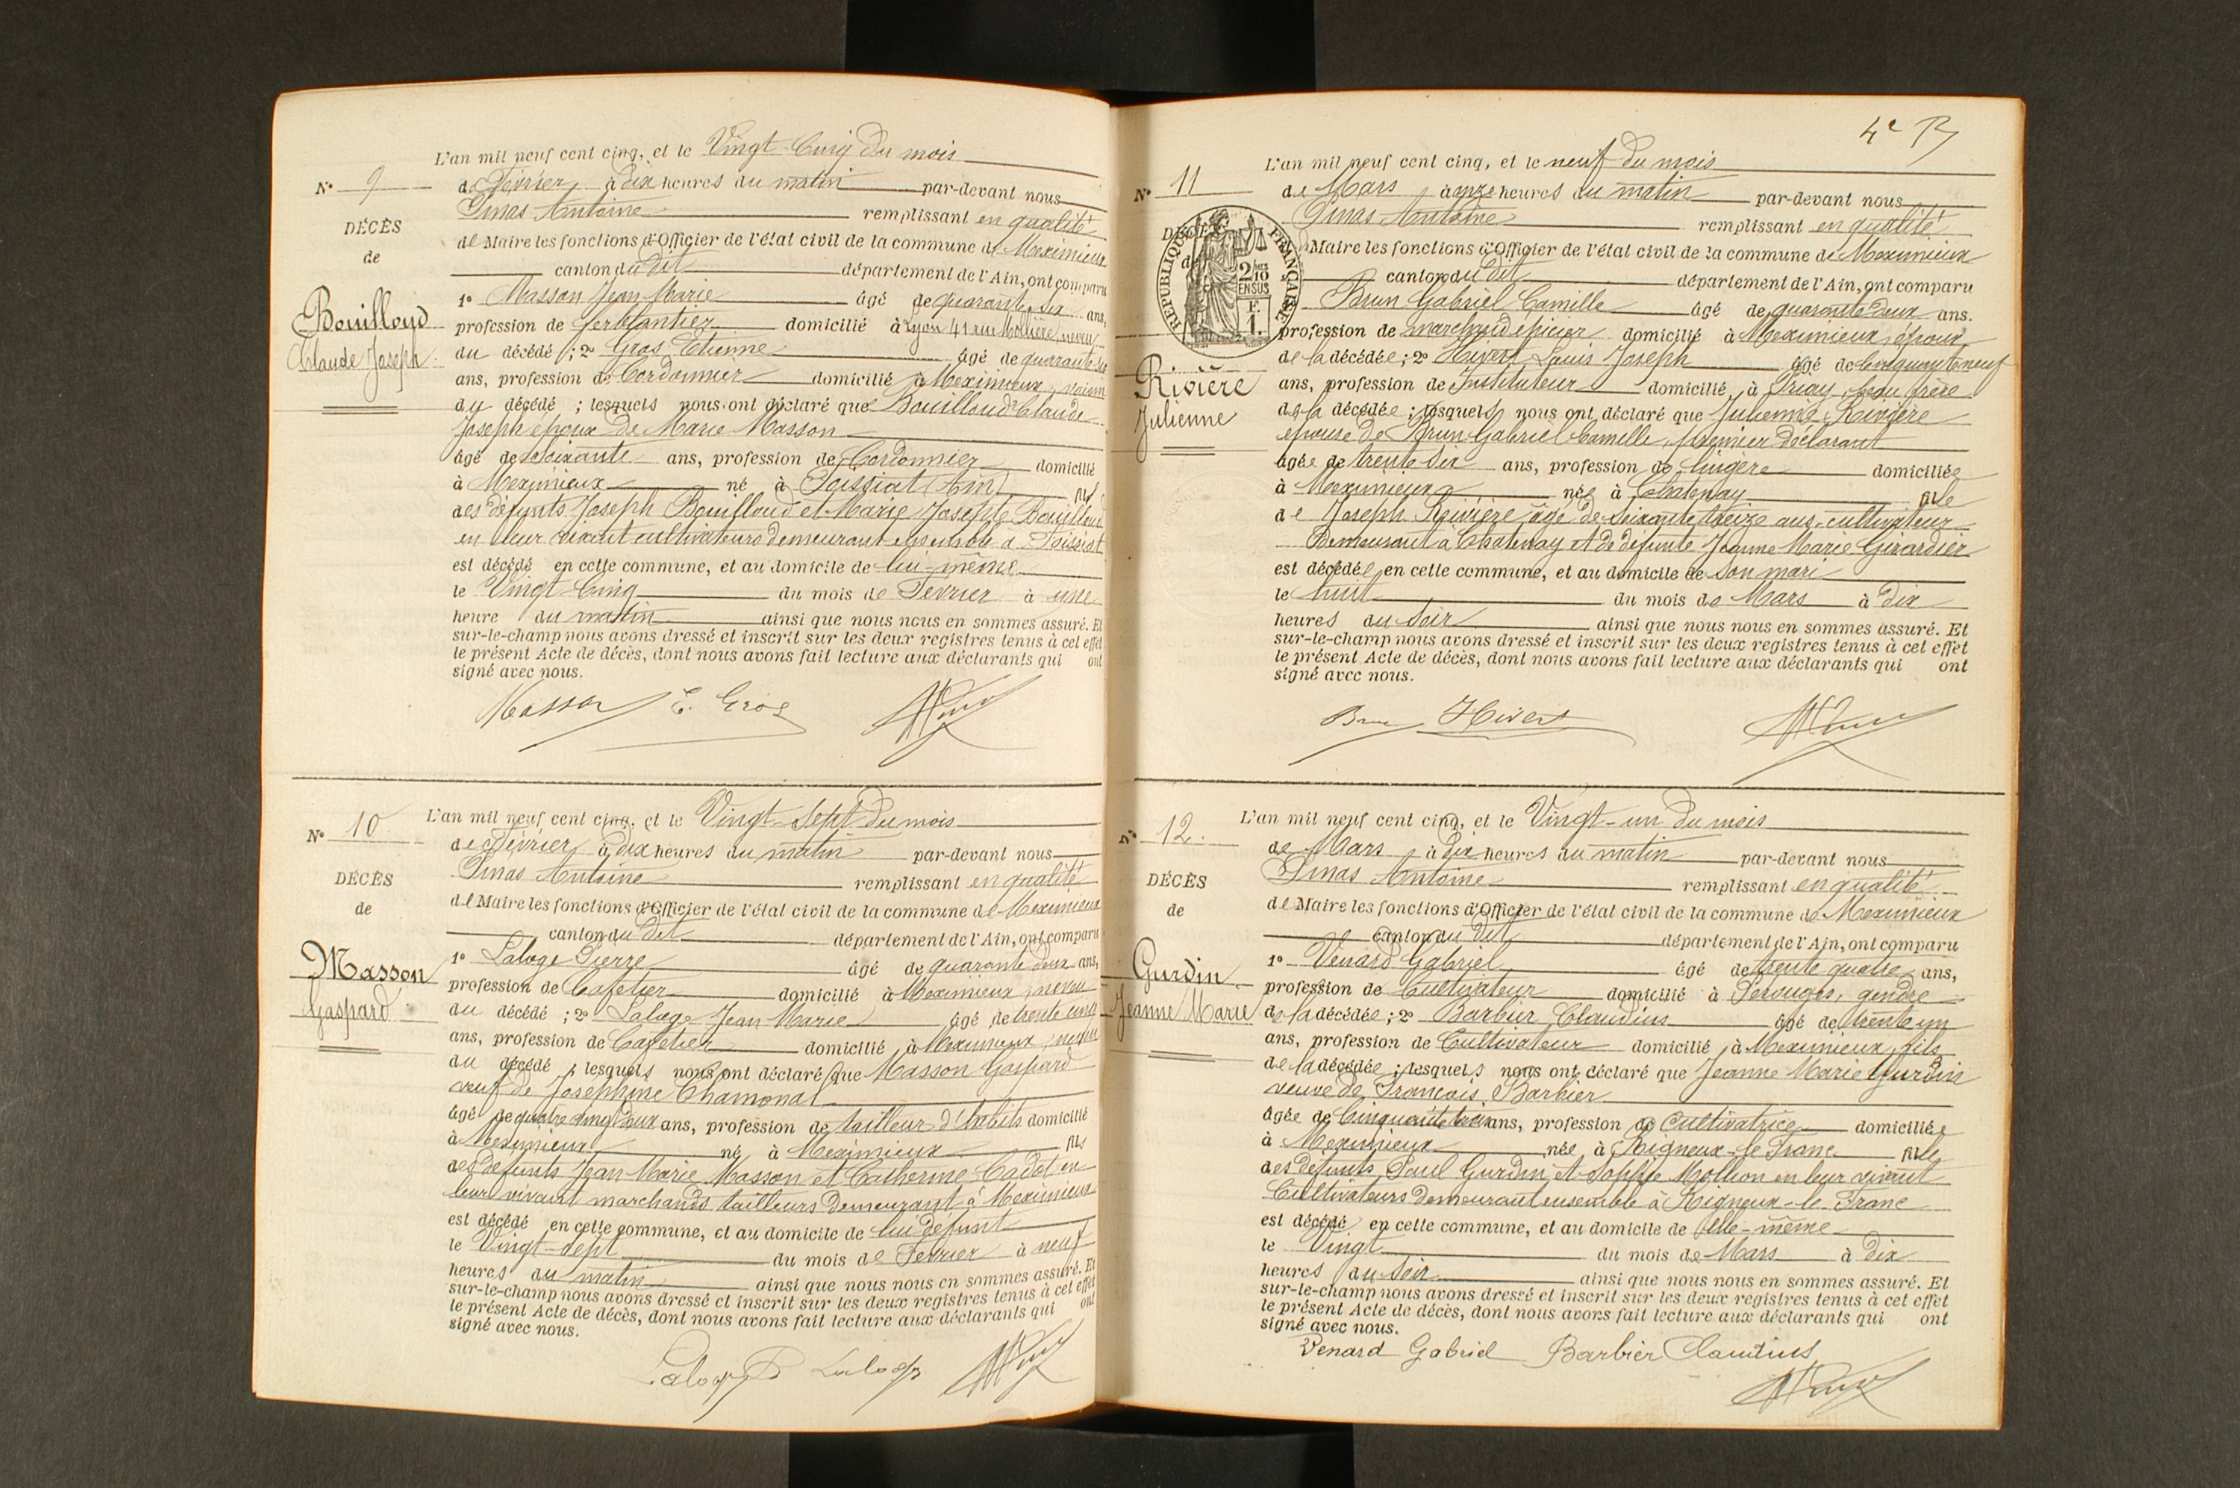 N° 9
DÉCÈS
de
Bouilloud
Claude Joseph
L'an mil neuf cent cinq, et le Vingt-Cinq du mois
de Février à dix heures du matin par-devant nous
Pinas Antoine remplissant en qualité
de Maire les fonctions d'Officier de l'état civil de la commune de Meximieux
canton du dit département de l'Ain, ont comparu
1° Masson Jean Marie âgé de quarante six ans,
profession de ferblantier domicilié à Lyon 41 rue Molière, neveu
du décédé ; 2° Gros Etienne âgé de quarante six
ans, profession de Cordonnier domicilié à Meximieux, voisin
du décédé ; lesquels nous ont déclaré que Bouilloud Claude
Joseph époux de Marie Masson
âgé de soixante ans, profession de Cordonnier domicilié
à Meximieux né à Poissiat (Ain) fils
des défunts Joseph Bouilloud et Marie Josephe Bouilloud
en leur vivant cultivateurs demeurant ensemble à Poissiat
est décédé en cette commune, et au domicile de lui-même
le Vingt-Cinq du mois de Février à une
heure du matin ainsi que nous nous en sommes assuré. Et
sur-le-champ nous avons dressé et inscrit sur les deux registres tenus à cet effet
le présent Acte de décès, dont nous avons fait lecture aux déclarants qui ont
signé avec nous.
Masson E. Gros
N° 10
DÉCÈS
de
Masson
Gaspard
L'an mil neuf cent cinq, et le Vingt-Sept du mois
de Février à dix heures du matin par-devant nous
Pinas Antoine remplissant en qualité
de Maire les fonctions d'Officier de l'état civil de la commune de Meximieux
canton du dit département de l'Ain, ont comparu
1° Laloge Pierre âgé de quarante deux ans,
profession de Cafetier domicilié à Meximieux, neveu
du décédé ; 2° Laloge Jean Marie âgé de trente cinq
ans, profession de Cafetier domicilié à Meximieux, neveu
du décédé ; lesquels nous ont déclaré que Masson Gaspard
veuf de Josephine Chamonal
âgé de quatre vingt deux ans, profession de tailleur d'habits domicilié
à Meximieux né à Meximieux fils
des défunts Jean Marie Masson et Catherine Cadot en
leur vivant marchands tailleurs demeurant à Meximieux
est décédé en cette commune, et au domicile de lui défunt
le Vingt-sept du mois de Février à neuf
heures du matin ainsi que nous nous en sommes assuré. Et
sur-le-champ nous avons dressé et inscrit sur les deux registres tenus à cet effet
le présent Acte de décès, dont nous avons fait lecture aux déclarants qui ont
signé avec nous.
Laloge P Laloge
4e
N° 11
DÉCÈS
de
RÉPUBLIQUE FRANÇAISE
2/10 EN SUS
F. 1.
Rivière
Julienne
L'an mil neuf cent cinq, et le neuf du mois
de Mars à onze heures du matin par-devant nous
Pinas Antoine remplissant en qualité
Maire les fonctions d'Officier de l'état civil de la commune de Meximieux
canton du dit département de l'Ain, ont comparu
Brun Gabriel Camille âgé de quarante deux ans.
profession de marchand épicier domicilié à Meximieux, époux
de la décédée ; 2° Hivert Louis Joseph âgé de Cinquante neuf
ans, profession de Instituteur domicilié à Priay, beau frère
de la décédée ; lesquels nous ont déclaré que Julienne Rivière
épouse de Brun Gabriel Camille, premier déclarant
âgée de trente six ans, profession de lingère domiciliée
à Meximieux née à Chatenay fille
de Joseph Rivière âgé de soixante treize ans, cultivateur
Demeurant à Chatenay et de défunte Jeanne Marie Girardier
est décédée en cette commune, et au domicile de son mari
le huit du mois de Mars à dix
heures du soir ainsi que nous nous en sommes assuré. Et
sur-le-champ nous avons dressé et inscrit sur les deux registres tenus à cet effet
le présent Acte de décès, dont nous avons fait lecture aux déclarants qui ont
signé avec nous.
Brun Hivert
N° 12
DÉCÈS
de
Gurdin
Jeanne Marie
L'an mil neuf cent cinq, et le Vingt-un du mois
de Mars à dix heures du matin par-devant nous
Pinas Antoine remplissant en qualité
de Maire les fonctions d'Officier de l'état civil de la commune de Meximieux
canton du dit département de l'Ain, ont comparu
1° Venard Gabriel âgé de trente quatre ans,
profession de Cultivateur domicilié à Perouges, gendre
de la décédée ; 2° Barbier Claudius âgé de trente un
ans, profession de Cultivateur domicilié à Meximieux, fils
de la décédée ; lesquels nous ont déclaré que Jeanne Marie Gurdin
veuve de François Barbier
âgée de Cinquante trois ans, profession de Cultivatrice domiciliée
à Meximieux née à Rigneux-le-Franc fille
des défunts Paul Gurdin et Sophie Mollion en leur vivant
Cultivateurs demeurant ensemble à Rigneux-le-Franc
est décédé en cette commune, et au domicile de elle-même
le Vingt du mois de Mars à dix
heures du soir ainsi que nous nous en sommes assuré. Et
sur-le-champ nous avons dressé et inscrit sur les deux registres tenus à cet effet
le présent Acte de décès, dont nous avons fait lecture aux déclarants qui ont
signé avec nous.
Venard Gabriel Barbier Claudius